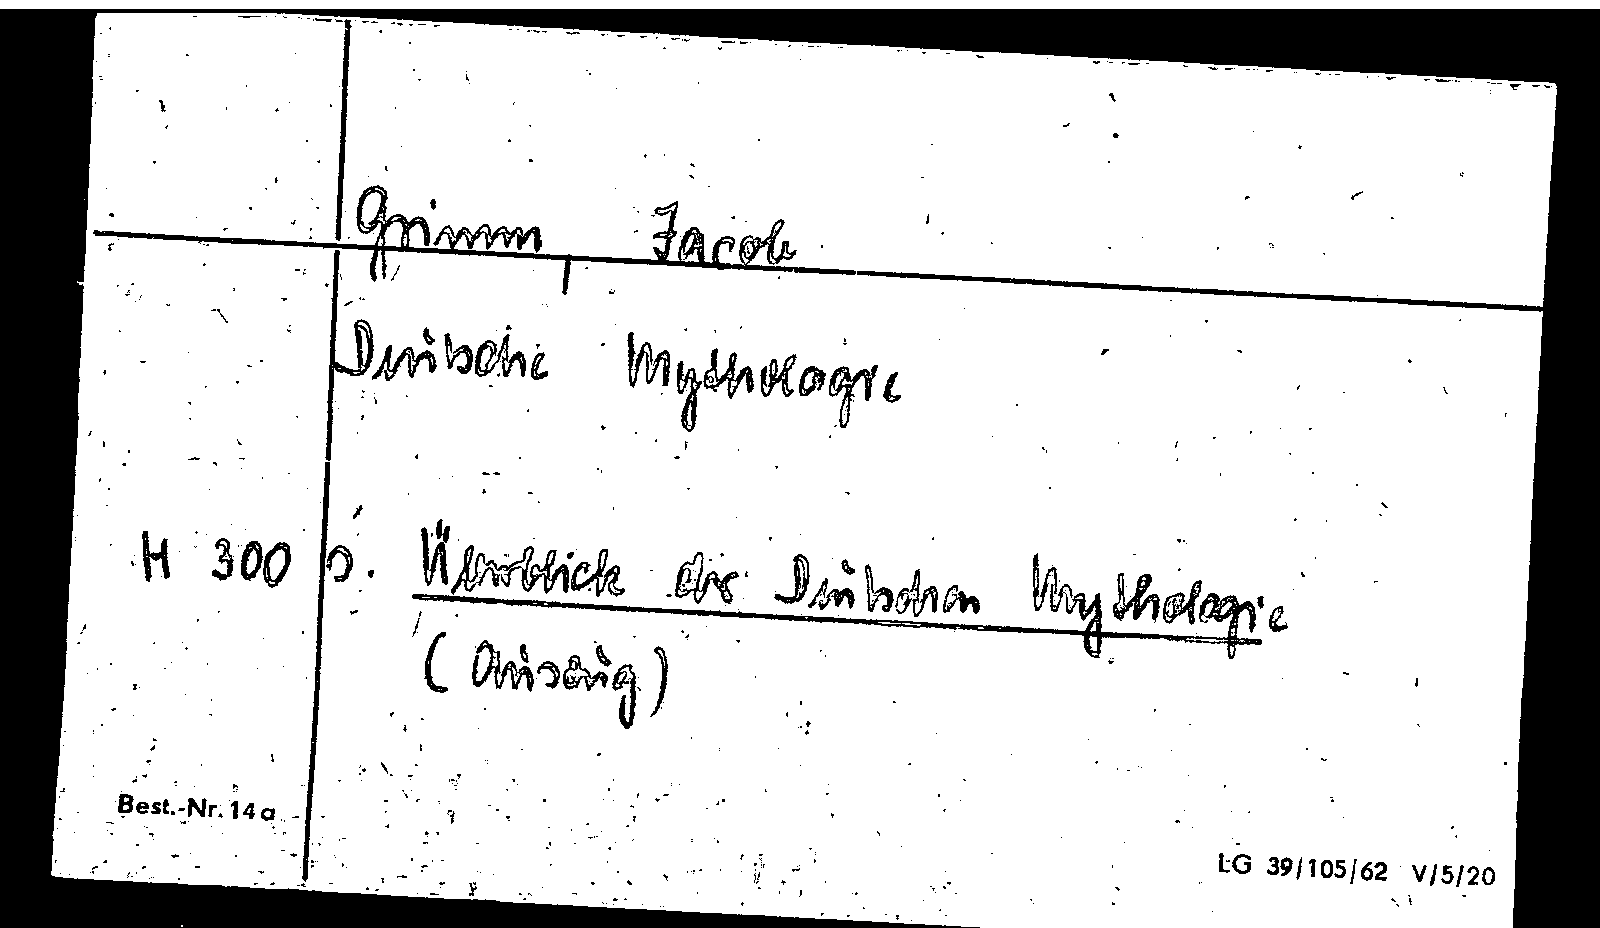 Grimm, Jacob
Deutsche Mythologie
H 300 s. Überblick der Deutschen Mythologie
(Auszug)
Best.-Nr. 14a
LG 39/105/62 V/5/20